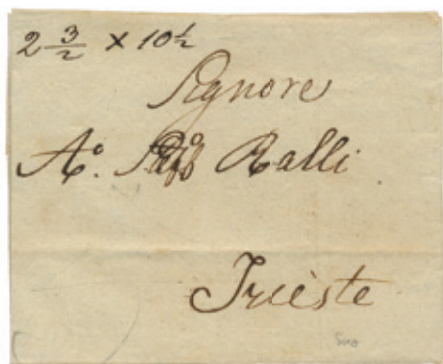 2 3/2 x 10 1/2
Signore
A.º Ralli
Trieste